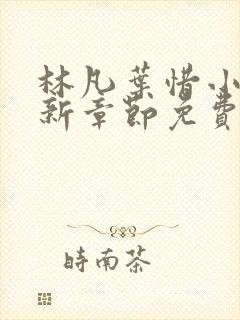 林凡葉惜小
新章節免費
時南茶